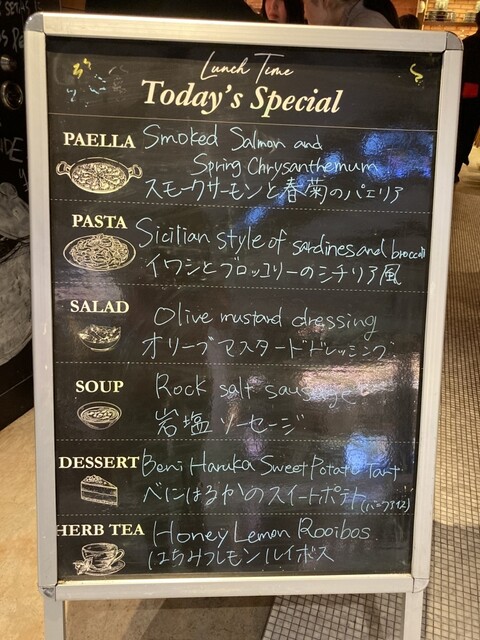 Lunch Time
Today's Special
PAELLA Smoked Salmon and
Spring Chrysanthemum
スモークサーモンと春菊のパエリア
PASTA Sicilian style of sardines and broccoli
イワシとブロッコリーのシチリア風
SALAD Olive mustard dressing
オリーブマスタードドレッシング
SOUP Rock salt sausage
岩塩ソーセージ
DESSERT Beni Haruka Sweet Potato Tart
べにはるかのスイートポテト
HERB TEA Honey Lemon Rooibos
はちみつレモンルイボス